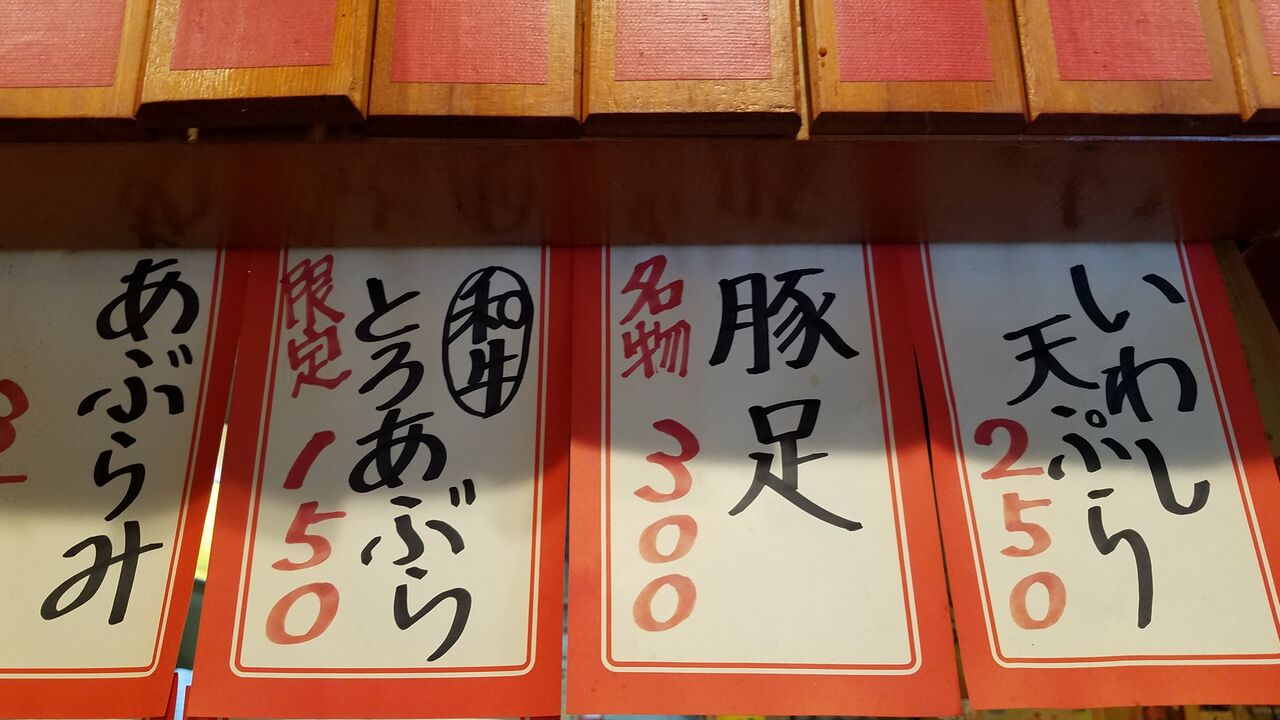 いわし
天ぷら
250
豚足
名物
300
和牛
とろあぶら
限定
150
あぶらみ